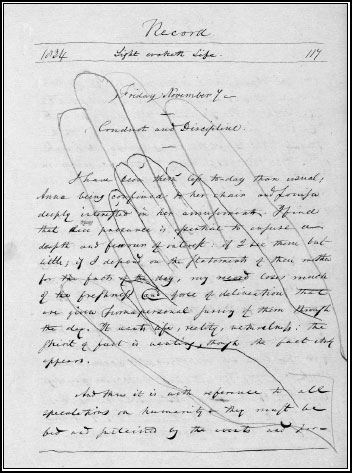 Record
1834 Light waketh Life. 117
Friday November 7
Conduct and Discipline.
I have seen them less to-day than usual,
Anna being confined to her chair and Louisa
deeply interested in her amusement. I find
that their presence is essential to infuse a
depth and fervour of interest: if I see them but
little, if I depend on the statements of their mother
for the facts of the day, my record loses much
of the freshness and force of delineation that
are given from personal survey of them through
the day. It wants life, reality, naturalness: the
spirit of fact is wanting, though the fact itself
appears.
And thus it is with reference to all
speculations on humanity: they must be
fed and sustained by the events and per-